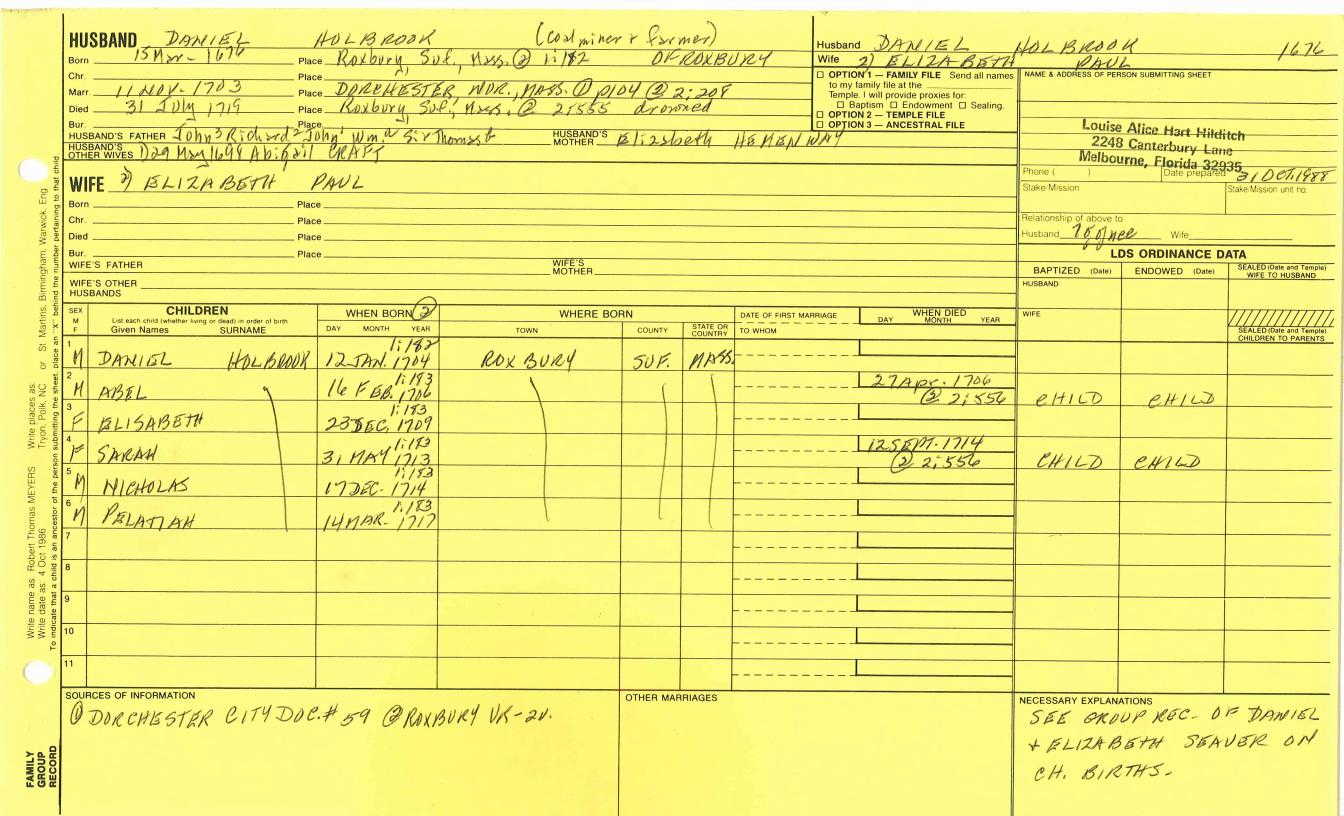 HUSBAND DANIEL HOLBROOK (coal miner & farmer)
Born 15 Mar- 1676 Place Roxbury, Suf., Mass. ② 1:182 OF ROXBURY
Chr. Place
Marr 11 NOV- 1703 Place DORCHESTER NOR., MASS. ① p104 ② 2:208
Died 31 July 1719 Place Roxbury, Suf., Mass. ② 2:555 drowned
Bur Place
HUSBAND'S FATHER John³ Richard² John¹ Wm a Sir Thomas b HUSBAND'S MOTHER Elizabeth HEMENWAY
HUSBAND'S OTHER WIVES 1) 29 May 1698 Abigail CRAFT
WIFE 2) ELIZABETH PAUL
Born Place
Chr. Place
Died Place
Bur. Place
WIFE'S FATHER WIFE'S MOTHER
WIFE'S OTHER HUSBANDS
Husband DANIEL HOLBROOK 1676
Wife 2) ELIZABETH PAUL
☐ OPTION 1 — FAMILY FILE Send all names
to my family file at the
Temple. I will provide proxies for:
☐ Baptism ☐ Endowment ☐ Sealing.
☐ OPTION 2 — TEMPLE FILE
☐ OPTION 3 — ANCESTRAL FILE
NAME & ADDRESS OF PERSON SUBMITTING SHEET
Louise Alice Hart Hilditch
2248 Canterbury Lane
Melbourne, Florida 32935
Phone ( ) Date prepared 31 OCT. 1988
Stake Mission Stake Mission unit no.
Relationship of above to
Husband Wife
LDS ORDINANCE DATA
BAPTIZED (Date) ENDOWED (Date) SEALED (Date and Temple) WIFE TO HUSBAND
HUSBAND
WIFE
SEALED (Date and Temple) CHILDREN TO PARENTS
SEX M F
CHILDREN
List each child (whether living or dead) in order of birth
Given Names SURNAME
WHEN BORN ②
DAY MONTH YEAR
WHERE BORN
TOWN COUNTY STATE OR COUNTRY
DATE OF FIRST MARRIAGE
TO WHOM
WHEN DIED
DAY MONTH YEAR
1 1:182
M DANIEL HOLBROOK 12 JAN. 1704 ROXBURY SUF. MASS.
2 1:183 27 Apr. 1706
M ABEL 16 FEB. 1706 ② 2:556 CHILD CHILD
3 1:183
F ELISABETH 23 DEC. 1709
4 1:183 12 SEPT. 1714
F SARAH 31 MAY 1713 ② 2:556 CHILD CHILD
5 1:183
M NICHOLAS 17 DEC. 1714
6 1:183
M PELATIAH 14 MAR. 1717
7
8
9
10
11
SOURCES OF INFORMATION
① DORCHESTER CITY DOC. # 59 ② ROXBURY VR-2V.
OTHER MARRIAGES
NECESSARY EXPLANATIONS
SEE GROUP REC. OF DANIEL
+ ELIZABETH SEAVER ON
CH. BIRTHS.
Write name as: Robert Thomas MEYERS Write places as: Tryon, Polk, NC or St. Martins, Birmingham, Warwick, Eng
Write date as: 4 Oct 1986
To indicate that a child is an ancestor of the person submitting the sheet, place an "X" behind the number pertaining to that child
FAMILY
GROUP
RECORD